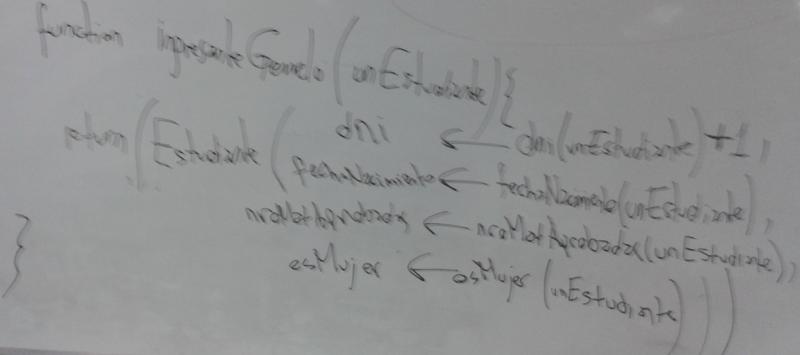 function ingresanteGemelo(unEstudiante){
return(Estudiante(dni ← dni(unEstudiante)+1,
fechaNacimiento ← fechaNacimiento(unEstudiante),
nroMatAprobadas ← nroMatAprobadas(unEstudiante),
esMujer ← esMujer(unEstudiante)))
}